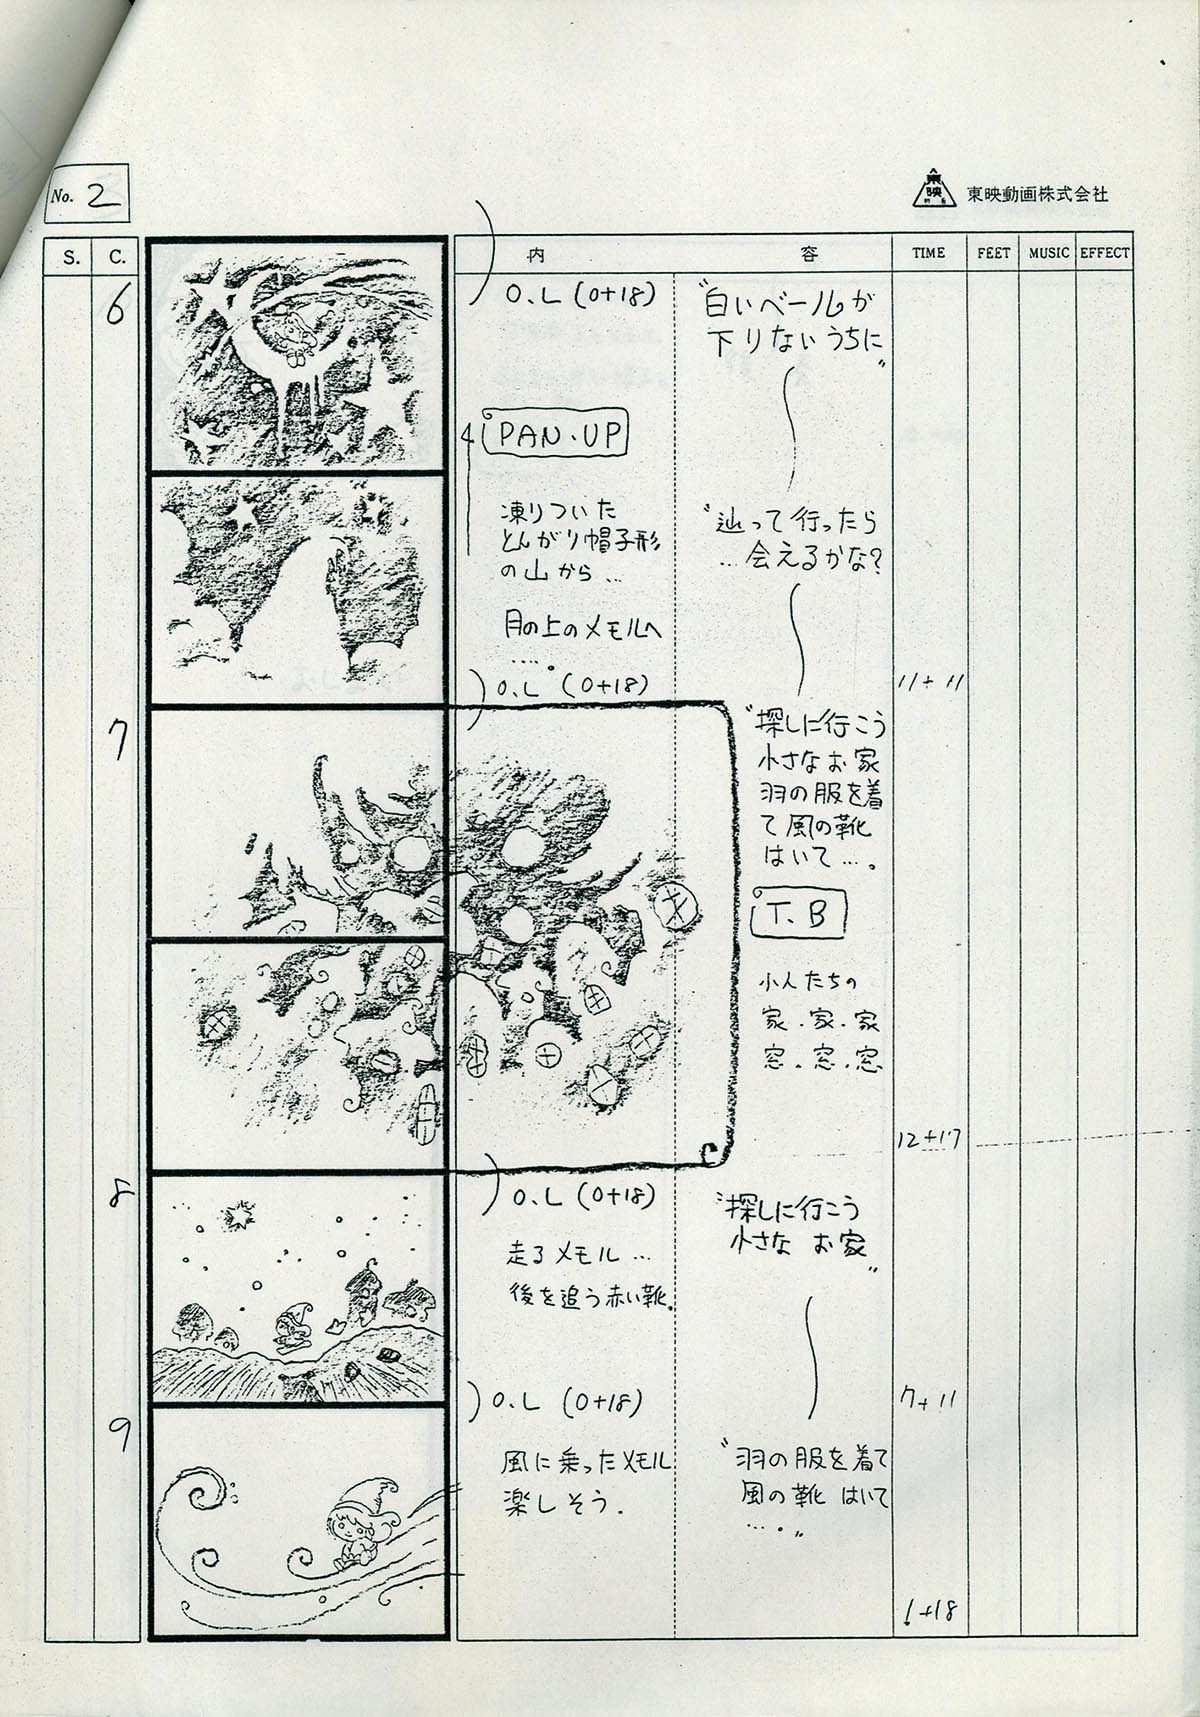 No. 2
東映動画株式会社
S. C. 内 容 TIME FEET MUSIC EFFECT
6
O.L (0+18)
"白いベールが
下りないうちに"
PAN.UP
凍りついた
とんがり帽子形
の山から…
月の上のメモルへ
‥‥。
"辿って行ったら
…会えるかな?
O.L (0+18)
11+11
7
"探しに行こう
小さなお家
羽の服を着
て風の靴
はいて…。
T.B
小人たちの
家.家.家
窓.窓.窓
12+17
8
O.L (0+18)
走るメモル…
後を追う赤い靴.
"探しに行こう
小さな お家"
7+11
9
O.L (0+18)
風に乗ったメモル
楽しそう.
"羽の服を着て
風の靴 はいて
…。"
1+18